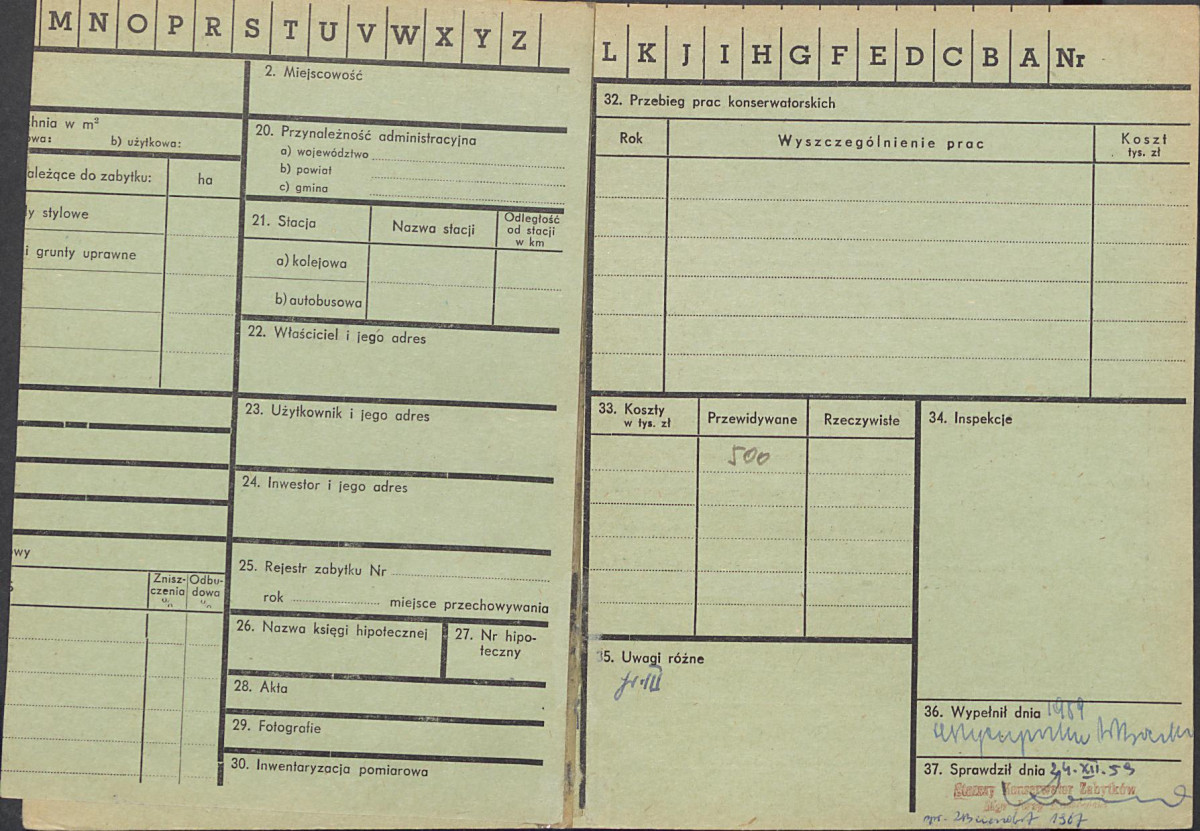 M N O P R S T U V W X Y Z
2. Miejscowość
b) użytkowa:
20. Przynależność administracyjna
a) województwo
b) powiat
c) gmina
ależące do zabytku:
ha
y stylowe
i grunty uprawne
21. Stacja
Nazwa stacji
Odległość
od stacji
w km
a) kolejowa
b) autobusowa
22. Właściciel i jego adres
23. Użytkownik i jego adres
24. Inwestor i jego adres
wy
Znisz-
czenia
%
Odbu-
dowa
%
25. Rejestr zabytku Nr
rok miejsce przechowywania
26. Nazwa księgi hipotecznej
27. Nr hipo-
teczny
28. Akta
29. Fotografie
30. Inwentaryzacja pomiarowa
L K J I H G F E D C B A Nr
32. Przebieg prac konserwatorskich
Rok
Wyszczególnienie prac
Koszt
tys. zł
33. Koszty
w tys. zł
Przewidywane
Rzeczywiste
500
34. Inspekcje
35. Uwagi różne
gr. III
36. Wypełnił dnia 1959
37. Sprawdził dnia 24.XII.59
Konserwator Zabytków
1967